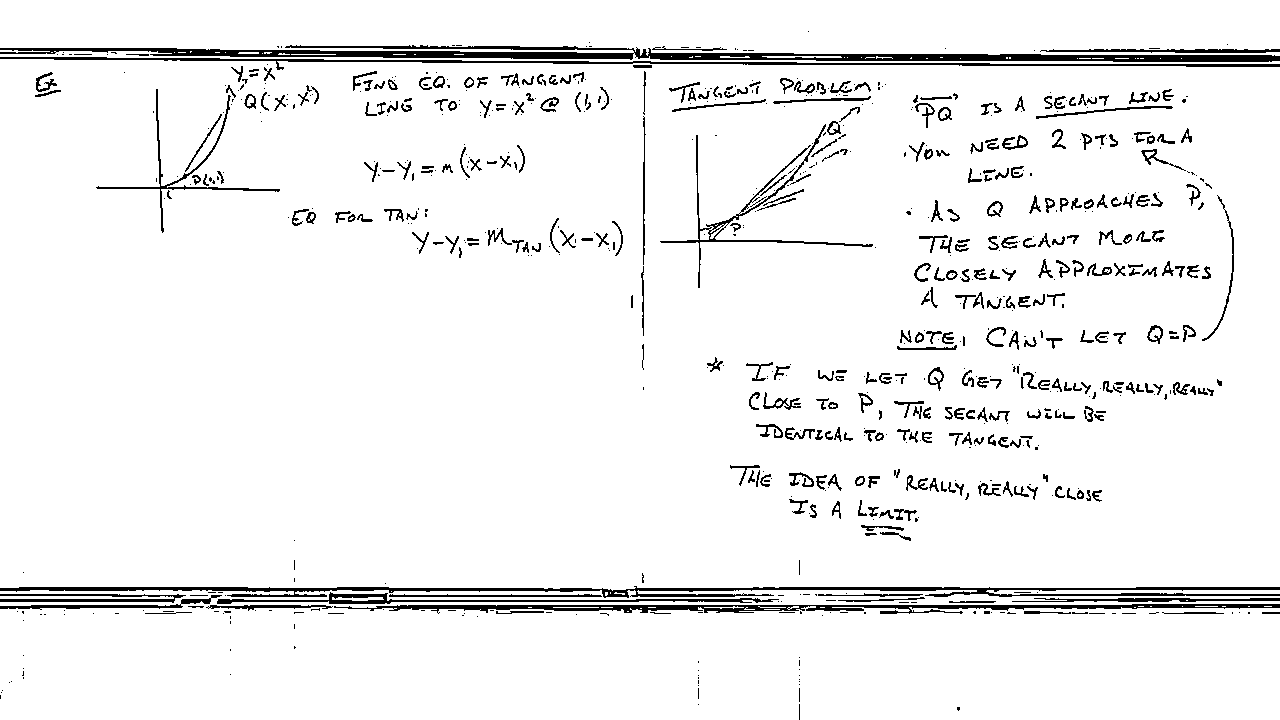 Ex
y=x²
Q(x,x²)
P(1,1)
FIND EQ. OF TANGENT
LINE TO y=x² @ (1,1)
y-y₁=m(x-x₁)
EQ FOR TAN:
y-y₁=m_TAN(x-x₁)
TANGENT PROBLEM:
Q
P
PQ IS A SECANT LINE.
·YOU NEED 2 PTS FOR A
LINE.
· AS Q APPROACHES P,
THE SECANT MORE
CLOSELY APPROXIMATES
A TANGENT.
NOTE: CAN'T LET Q=P
* IF WE LET Q GET "REALLY, REALLY, REALLY"
CLOSE TO P, THE SECANT WILL BE
IDENTICAL TO THE TANGENT.
THE IDEA OF "REALLY, REALLY" CLOSE
IS A LIMIT.